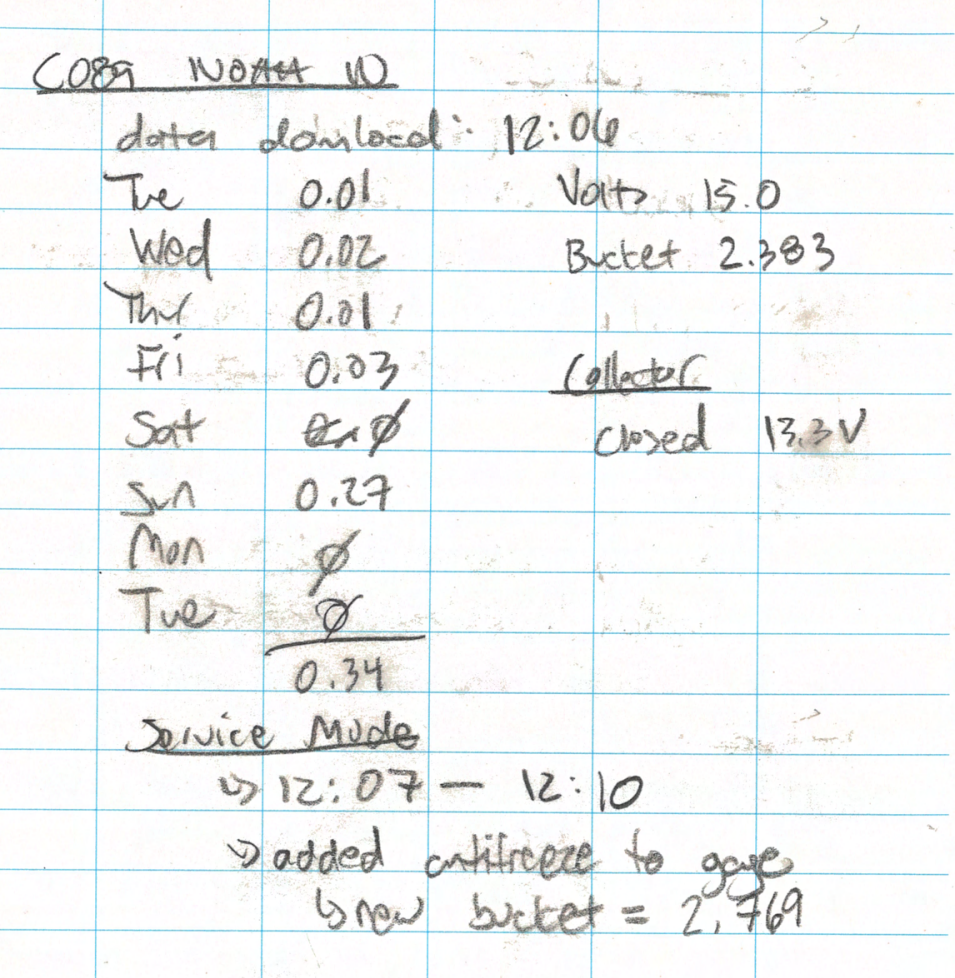 data download: 12:06
Tue 0.01 Volts 15.0
Wed 0.02 Bucket 2.383
Thr 0.01
Fri 0.03 Collector
Sat Ø closed 13.3V
Sun 0.27
Mon Ø
Tue Ø
0.34
Service Mode
↳ 12:07 — 12:10
↳ added antifreeze to gage
↳ new bucket = 2.769